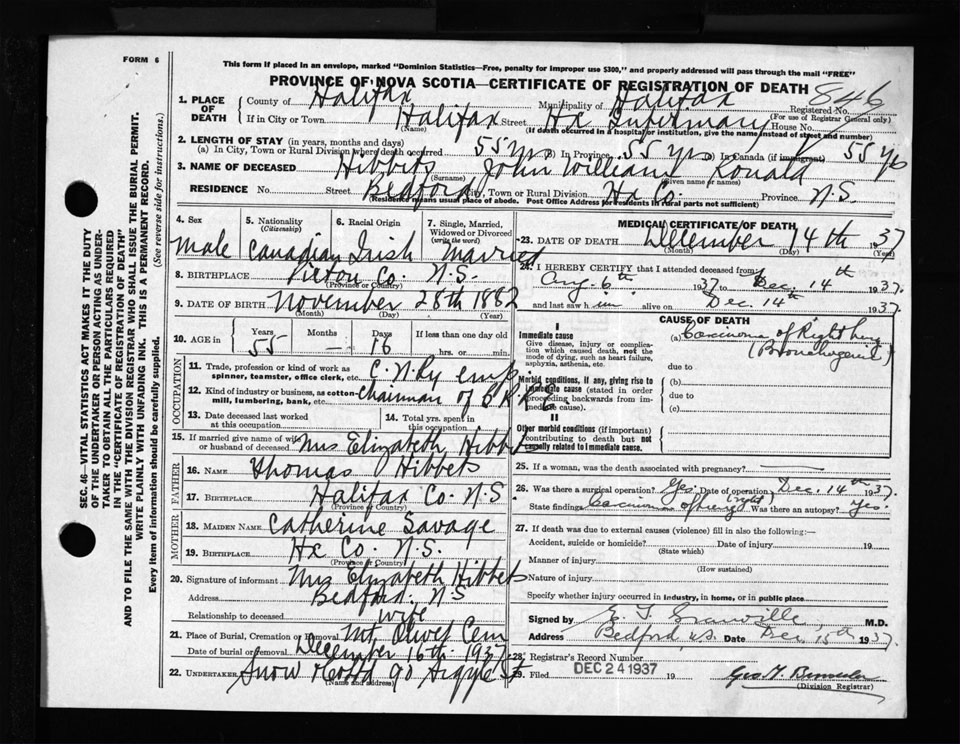 FORM 6
This form if placed in an envelope, marked "Dominion Statistics—Free, penalty for improper use $300," and properly addressed will pass through the mail "FREE"
PROVINCE OF NOVA SCOTIA—CERTIFICATE OF REGISTRATION OF DEATH
1. PLACE OF DEATH County of Halifax Municipality of Halifax Registered No. 846
(For use of Registrar General only)
If in City or Town Halifax Street Hx Infirmary House No.
(Name) (If death occurred in a hospital or institution, give the name instead of street and number)
2. LENGTH OF STAY (in years, months and days)
(a) In City, Town or Rural Division where death occurred 55 yrs (b) In Province 55 yrs (c) In Canada (if immigrant) 55 yrs
3. NAME OF DECEASED Hibbits John William Ronald
(Surname) (Given name or names)
RESIDENCE No. Street Bedford City, Town or Rural Division Hx Co. Province N.S.
(Residence means usual place of abode. Post Office Address for residents in rural parts not sufficient)
4. Sex
Male
5. Nationality
(Citizenship)
Canadian
6. Racial Origin
Irish
7. Single, Married, Widowed or Divorced
(write the word)
Married
8. BIRTHPLACE Pictou Co. N.S.
(Province or Country)
9. DATE OF BIRTH November 28th 1882
(Month) (Day) (Year)
10. AGE in Years Months Days If less than one day old
55 — 16 hrs. or min.
OCCUPATION
11. Trade, profession or kind of work as spinner, teamster, office clerk, etc. C.N.Ry emp.
12. Kind of industry or business, as cotton-mill, lumbering, bank, etc. chairman of
13. Date deceased last worked at this occupation
14. Total yrs. spent in this occupation
15. If married give name of wife or husband of deceased Mrs Elizabeth Hibbets
FATHER
16. NAME Thomas Hibbets
17. BIRTHPLACE Halifax Co. N.S
(Province or Country)
MOTHER
18. MAIDEN NAME Catherine Savage
19. BIRTHPLACE Hx Co. N.S.
(Province or Country)
20. Signature of informant Mrs Elizabeth Hibbets
Address Bedford. N.S
Relationship to deceased wife
21. Place of Burial, Cremation or Removal Mt. Olivet Cem
Date of burial or removal December 16th. 1937
22. UNDERTAKER Snow 90 Argyle St
(Name and address)
MEDICAL CERTIFICATE OF DEATH
23. DATE OF DEATH December 14th 1937
(Month) (Day) (Year)
24. I HEREBY CERTIFY that I attended deceased from
Aug. 6th 1937 to Dec. 14th 1937.
and last saw him alive on Dec. 14th 1937.
CAUSE OF DEATH
I
Immediate cause
Give disease, injury or complication which caused death, not the mode of dying, such as heart failure, asphyxia, asthenia, etc.
(a) Carcinoma of Right lung
(Bronchogenic)
due to
Morbid conditions, if any, giving rise to immediate cause (stated in order proceeding backwards from immediate cause).
(b)
due to
(c)
II
Other morbid conditions (if important) contributing to death but not causally related to immediate cause.
25. If a woman, was the death associated with pregnancy? —
26. Was there a surgical operation? Yes. Date of operation Dec. 14th 1937.
State findings Carcinoma of lung (right) Was there an autopsy? Yes.
27. If death was due to external causes (violence) fill in also the following:—
Accident, suicide or homicide? Date of injury 19
(State which)
Manner of injury
(How sustained)
Nature of injury
Specify whether injury occurred in industry, in home, or in public place
Signed by E. F. Granville M.D.
Address Bedford, N.S. Date Dec. 15th 1937
28. Registrar's Record Number
29. Filed DEC 24 1937 19 Geo.
(Division Registrar)
SEC. 46—VITAL STATISTICS ACT MAKES IT THE DUTY
OF THE UNDERTAKER OR PERSON ACTING AS UNDER-
TAKER TO OBTAIN ALL THE PARTICULARS REQUIRED
IN THE "CERTIFICATE OF REGISTRATION OF DEATH"
AND TO FILE THE SAME WITH THE DIVISION REGISTRAR WHO SHALL ISSUE THE BURIAL PERMIT.
WRITE PLAINLY WITH UNFADING INK. THIS IS A PERMANENT RECORD.
Every item of information should be carefully supplied. (See reverse side for instructions.)